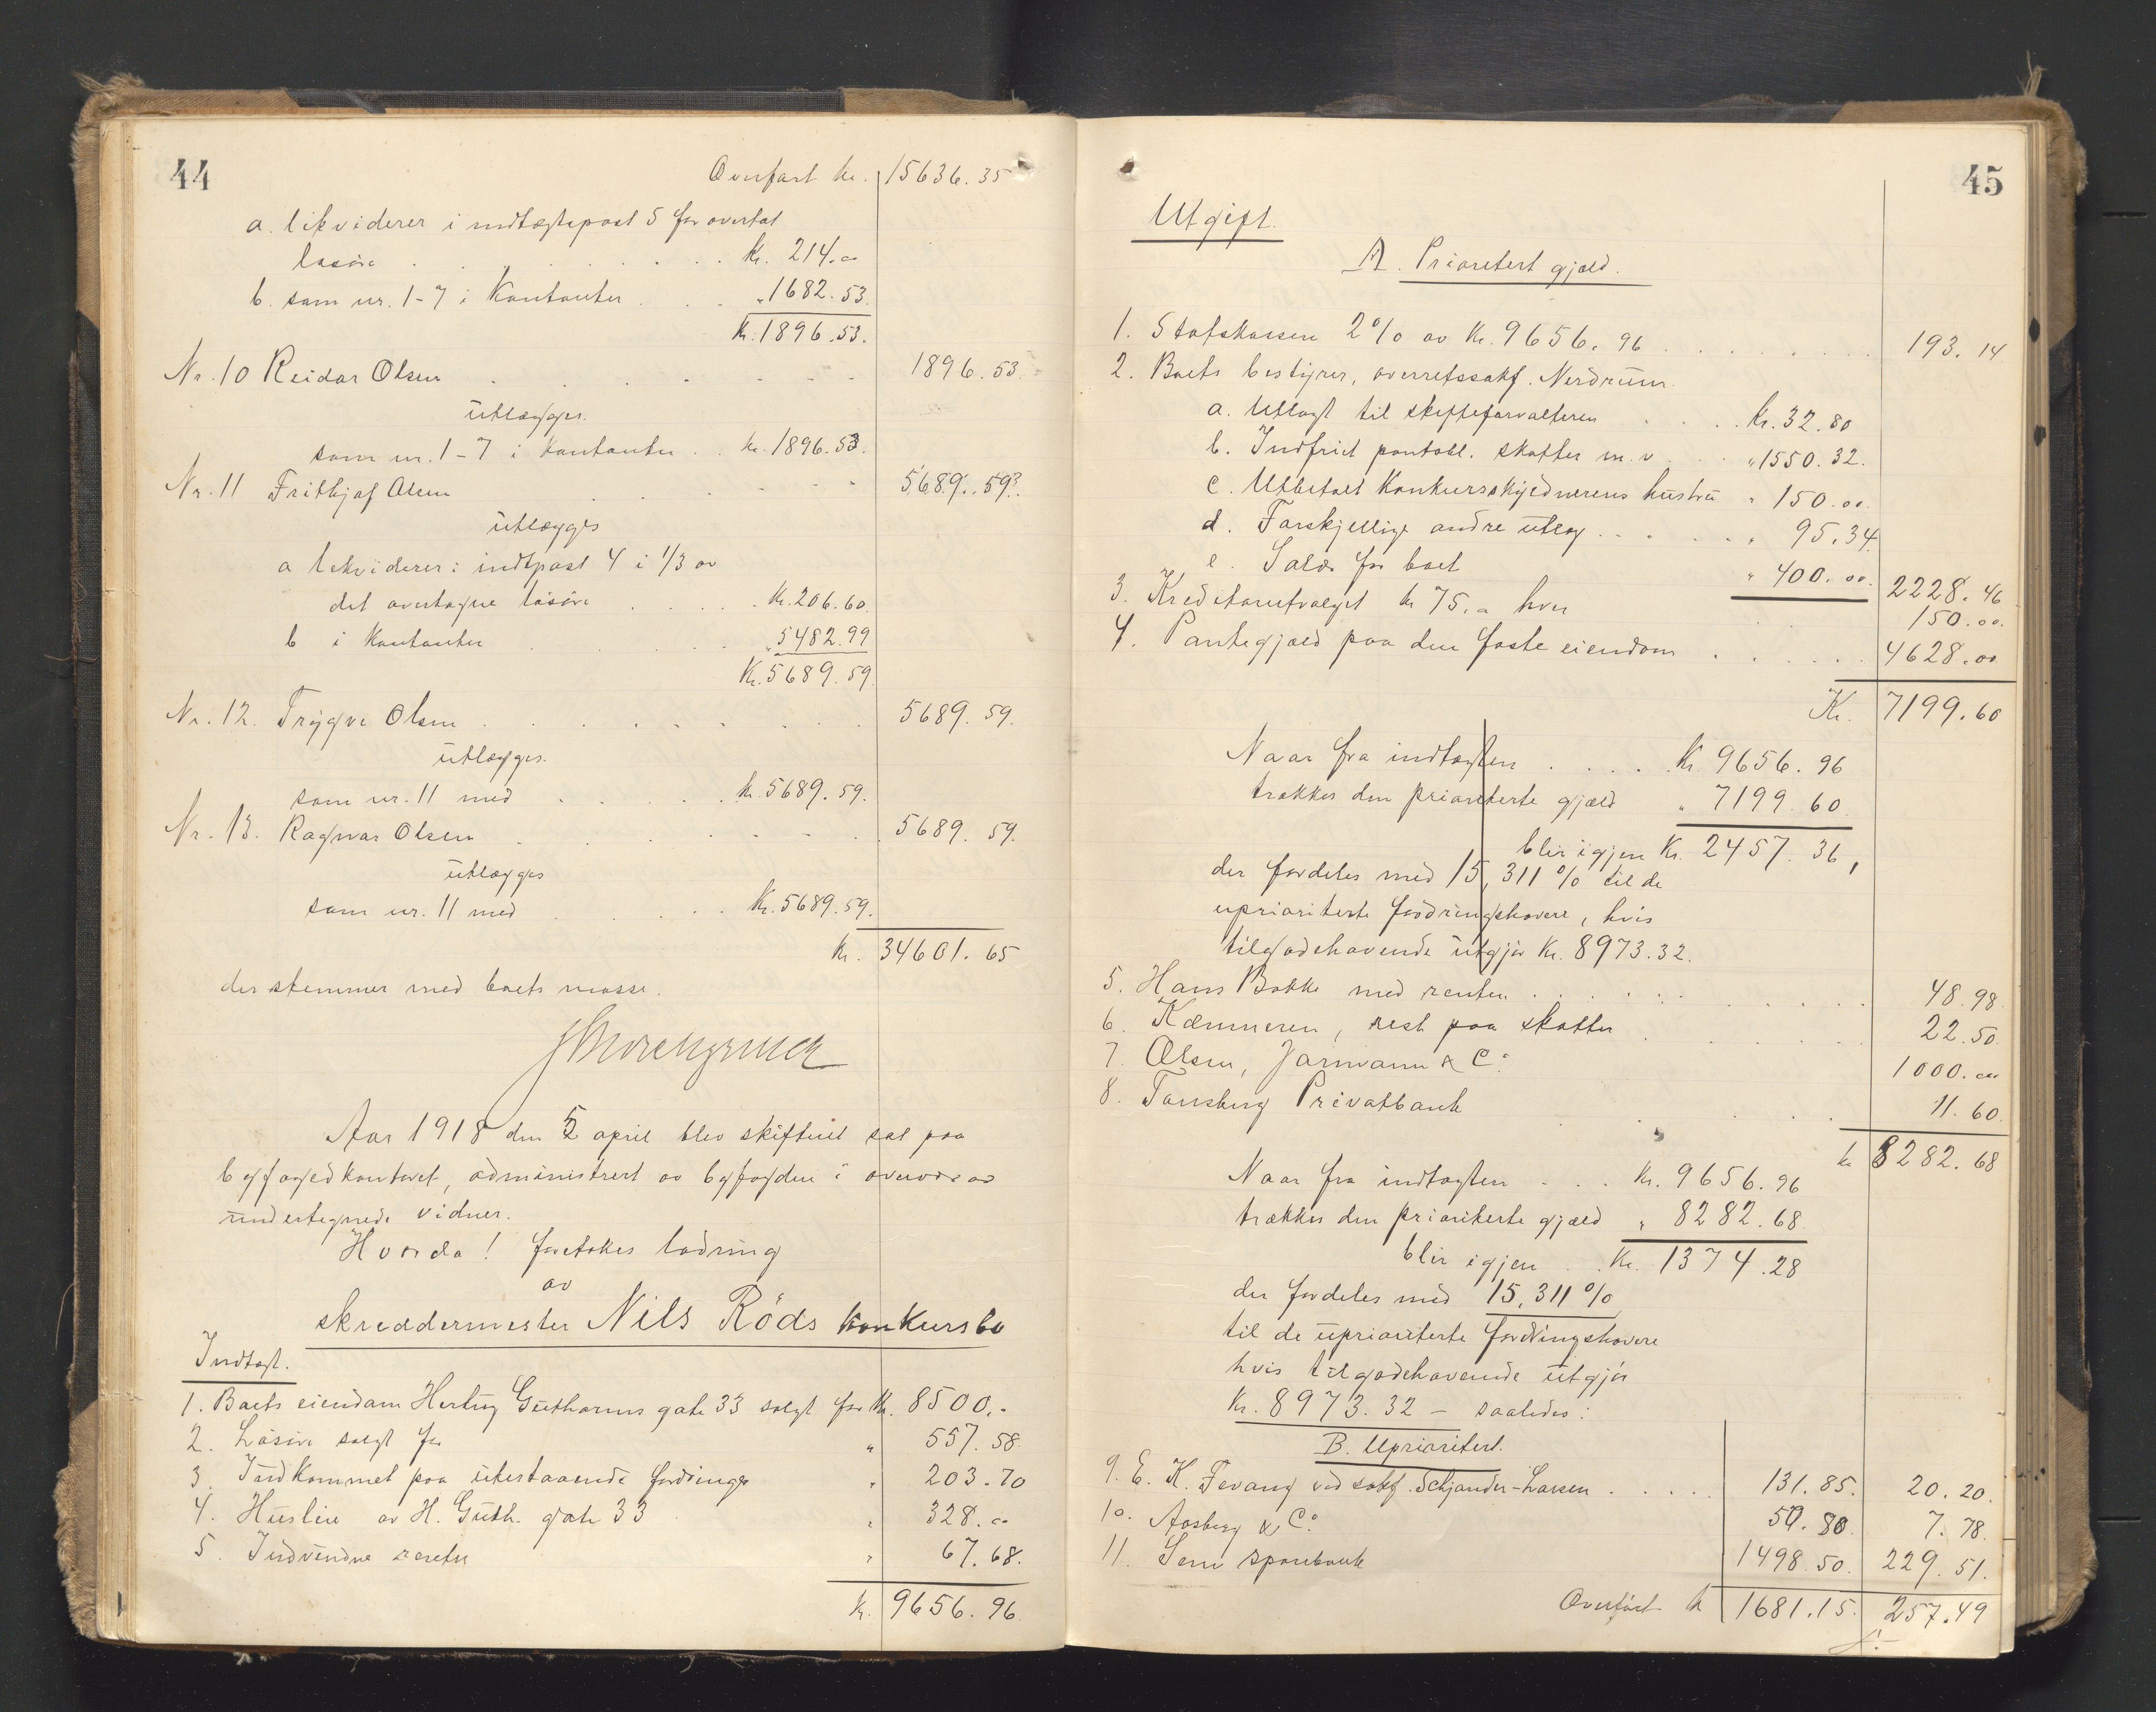 44
Overført kr. 15636.35
a. likviderer i indtægtspost 5 for overtat
løsøre . . . . . . . kr. 214.00
b. som nr. 1-7 i kontanter . . . „ 1682.53.
kr. 1896.53.
Nr. 10 Reidar Olsen . . . . . . 1896.53.
utlægges.
som nr. 1-7 i kontanter . . kr. 1896.53.
Nr. 11 Frithjof Olsen . . . . . . 5689.59.
utlægges
a likviderer i indtpost 4 i 1/3 av
det overtagne løsøre . . . . kr. 206.60.
b i kontanter . . . . „ 5482.99
Kr. 5689.59.
Nr. 12. Trygve Olsen . . . . . . . 5689.59.
utlægges.
som nr. 11 med . . . . . kr. 5689.59.
Nr. 13. Ragnar Olsen . . . . . . 5689.59.
utlægges
som nr. 11 med . . . . . Kr. 5689.59.
kr. 34601.65
der stemmer med boets masse.
Aar 1918 den 5 april blev skifteret sat paa
byfogedkontoret, administrert av byfogden i overvær av
undertegnede vidner.
Hvorda! foretokes lodning
av
skreddermester Nils Röds konkursbo
Indtægt.
1. Boets eiendom Hertug Guthorms gate 33 solgt for Kr. 8500.-
2. Løsøre solgt for „ 557.58.
3. Indkommet paa utestaaende fordringer „ 203.70
4. Husleie av H. Guth. gate 33 „ 328.00
5. Indvundne renter „ 67.68.
kr. 9656.96
45
Utgift.
A. Prioritert gjæld.
1. Statskassen 2% av Kr. 9656.96 . . . . . . . 193.14
2. Boets bestyrer, overretssakf. Nerdrum.
a. Utlagt til skifteforvalteren . . . . Kr. 32.80
b. Indfriet pantobl. skatter m.v. . . „ 1550.32.
c. Utbetalt konkursskyldnerens hustru „ 150.00.
d. Forskjellige andre utlæg . . . . . „ 95.34.
e. Salær for boet „ 400.00. 2228.46
3. Kreditorutvalget kr 75.00 hver 150.00.
4. Pantegjæld paa den faste eiendom . . . . . . 4628.00
Kr. 7199.60
Naar fra indtægten . . . . Kr. 9656.96
trækkes den prioriterte gjæld „ 7199.60
blir igjen Kr. 2457.36,
der fordeles med 15,311% til de
uprioriterte fordringshavere, hvis
tilgodehavende utgjør Kr. 8973.32.
5. Hans Bakke med renter . . . . . . . . . . 48.98.
6. Kæmneren, rest paa skatter . . . . 22.50.
7. Olsen, Jarmann & Co. 1000.00
8. Tønsberg Privatbank . . . . 11.60.
kr 8282.68
Naar fra indtægten . . . Kr. 9656.96
trækkes den prioriterte gjæld „ 8282.68
blir igjen . . Kr. 1374.28
der fordeles med 15,311%
til de uprioriterte fordringshavere
hvis tilgodehavende utgjør
Kr. 8973.32 – saaledes:
B. Uprioritert.
9. E. K. Fevang ved sakf. Schjander-Larsen . . . . . 131.85. 20.20.
10. Aasberg & Co. 50.80. 7.78.
11. Sem sparebank 1498.50. 229.51.
Overført kr 1681.15. 257.49